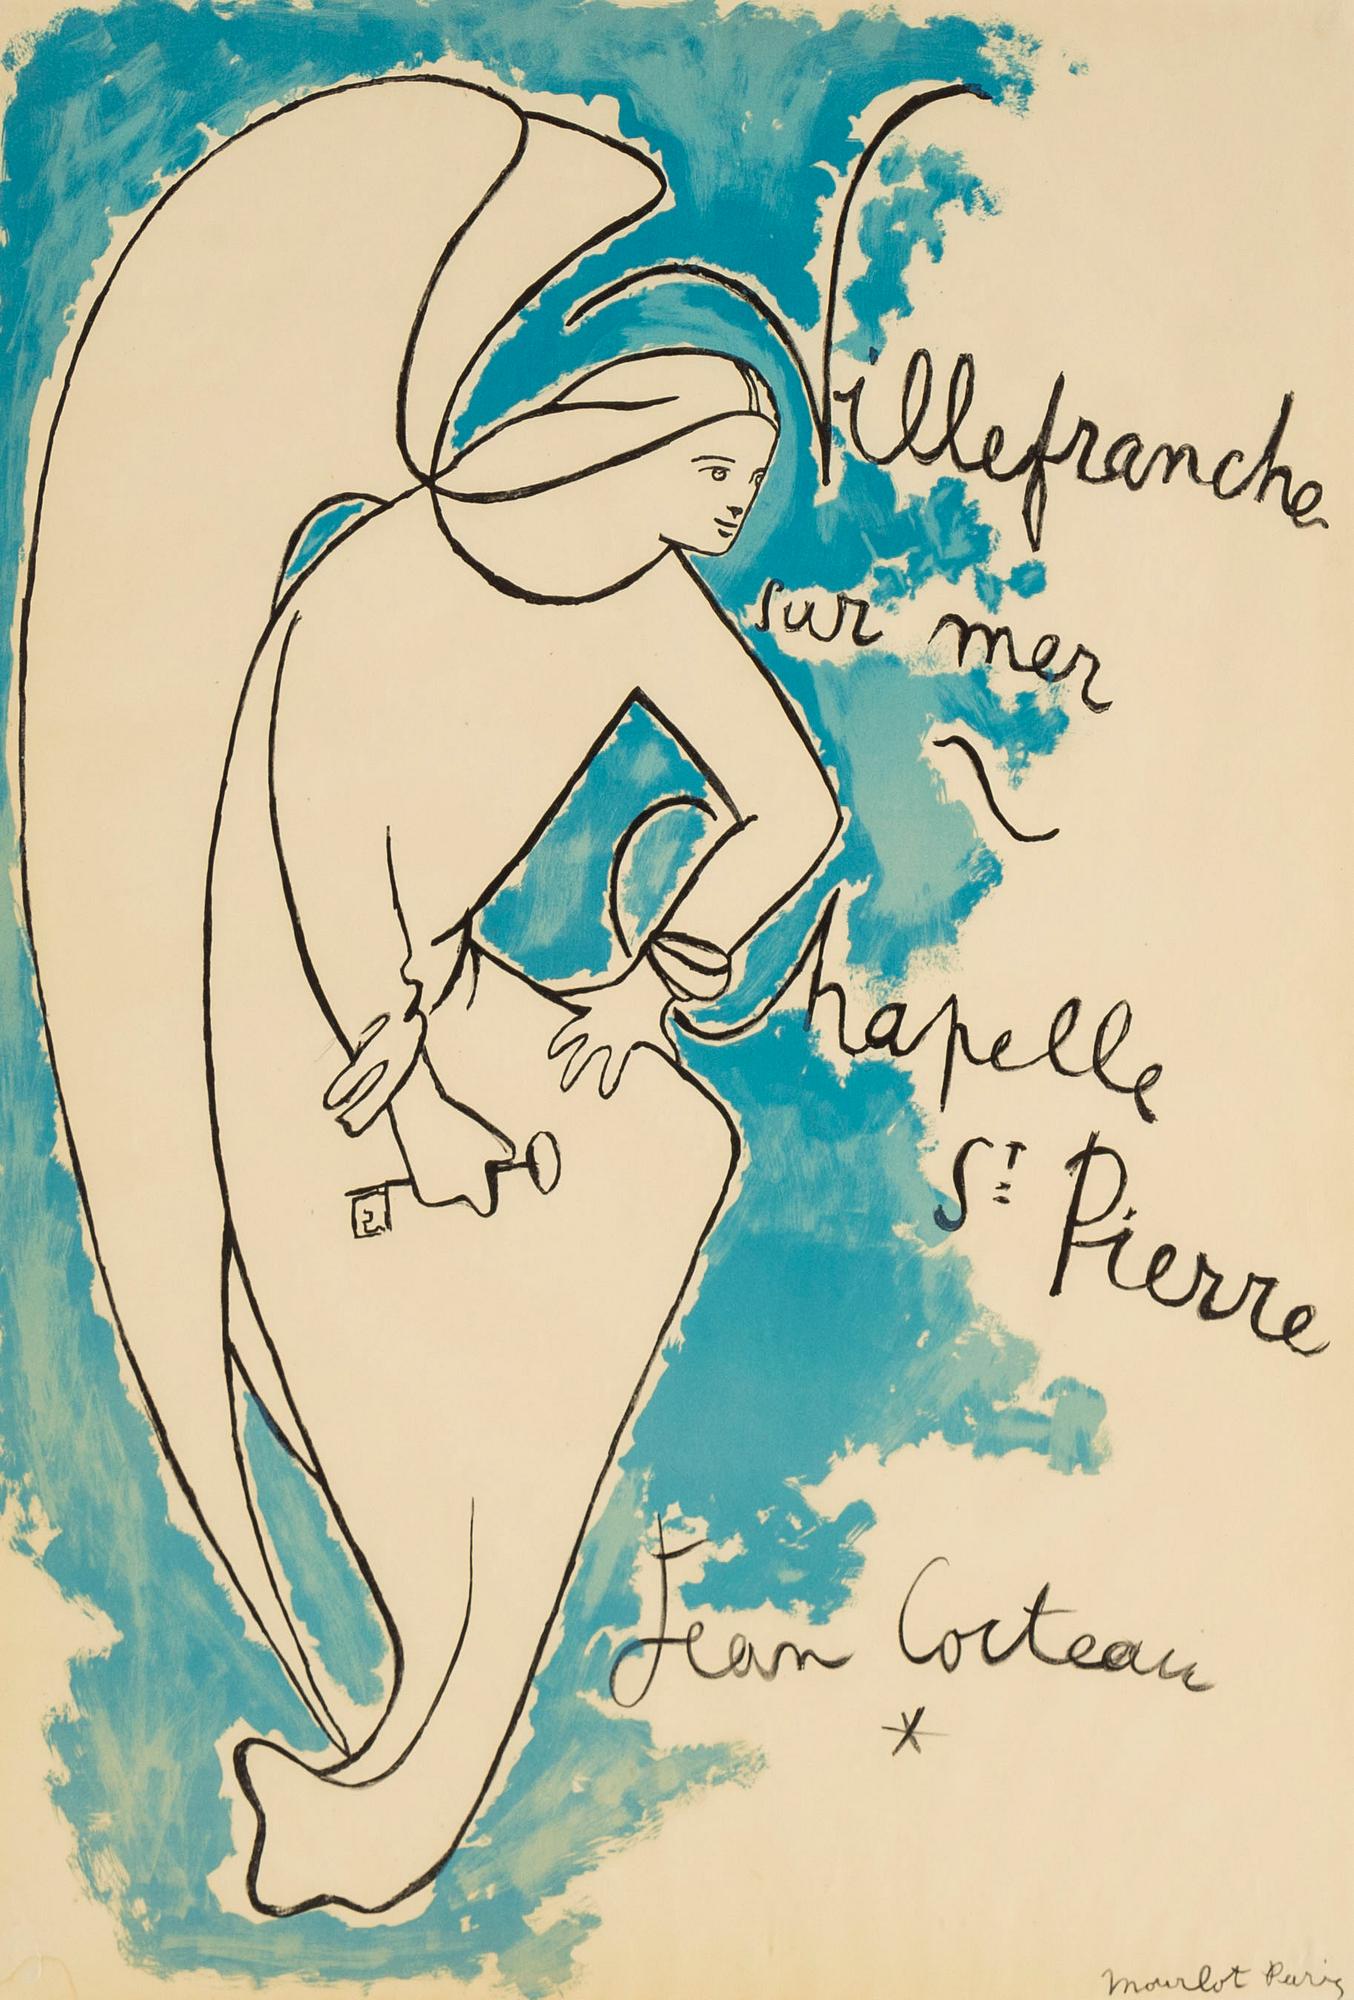 Villefranche
sur mer
~
Chapelle
St Pierre
Jean Cocteau
*
Mourlot Paris